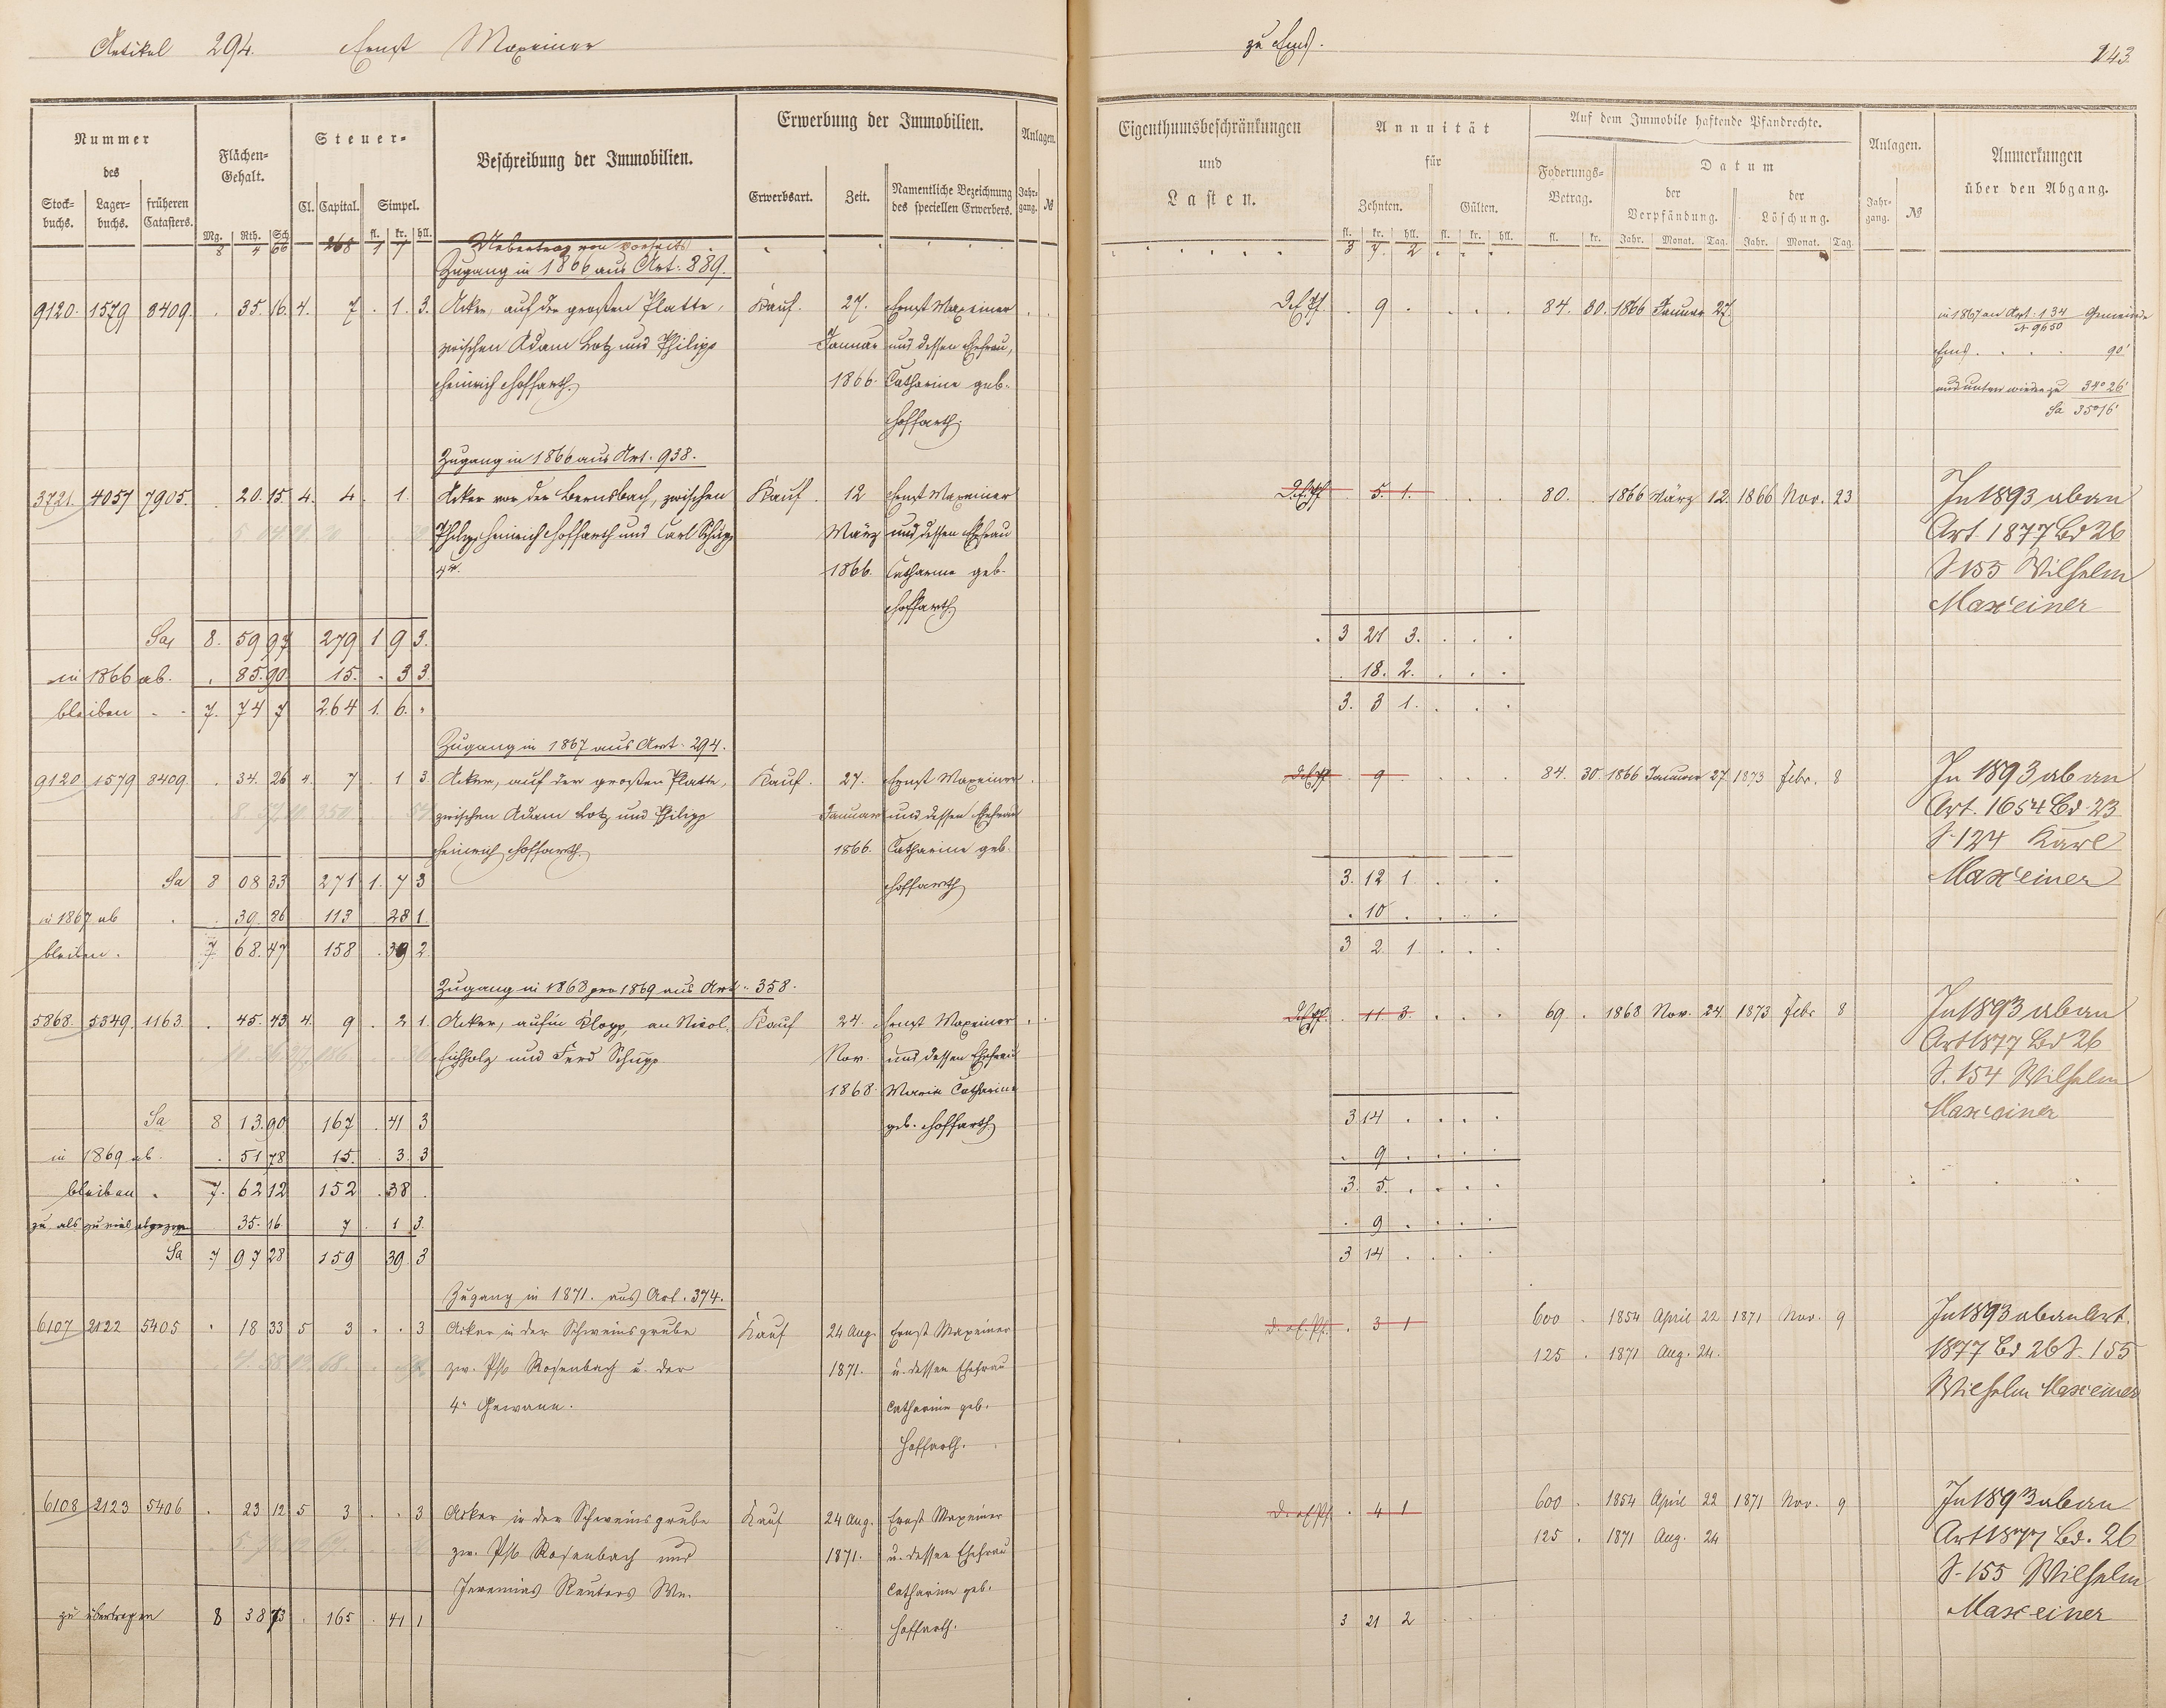 Artikel 294. Ernst Maxeiner zu Ems. 143.
Nummer des
Stock-buchs. Lager-buchs. früheren Catasters.
Flächen-Gehalt.
Mg. Rth. Sch
Steuer-
Cl. Capital. Simpel.
fl. kr. hll.
Beschreibung der Immobilien.
Erwerbung der Immobilien.
Erwerbsart. Zeit. Namentliche Bezeichnung des speciellen Erwerbers.
Anlagen.
Jahr-gang. №
Eigenthumsbeschränkungen
und
Lasten.
Annuität
für
Zehnten. Gülten.
fl. kr. hll. fl. kr. hll.
Auf dem Immobile haftende Pfandrechte.
Foderungs-Betrag.
fl. kr.
Datum
der Verpfändung. der Löschung.
Jahr. Monat. Tag. Jahr. Monat. Tag.
Anlagen.
Jahr-gang. №
Anmerkungen
über den Abgang.
8 4 66 268 1 7 Uebertrag von vorseits 3 7. 2
Zugang in 1866 aus Art. 889.
9120. 1579 8409. . 35. 16. 4. 7 . 1. 3. Acker, auf der großen Platte, Kauf. 27. Ernst Maxeiner . 9 84. 30. 1866 Januar 27. in 1867 an Art. 134 Gemeinde
№ 9650
zwischen Adam Lotz und Philipp Januar und dessen Ehefrau, Ems . . . 90'
Heinrich Hoffarth. 1866. Catharine geb. und unten wieder zu 34° 26'
Hoffarth. Sa 35° 16'
Zugang in 1866 aus Art. 938.
3721. 4057 7905. . 20. 15. 4. 4. . 1. Acker vor der Bernsbach, zwischen Kauf. 12 Ernst Maxeiner 5. 1. 80. . 1866 März 12. 1866 Nov. 23 In 1893 ab an
Philipp Heinrich Hoffarth und Carl Schupp März und dessen Ehefrau Art. 1877 Bd 26
4r. 1866. Catharine geb. S 155 Wilhelm
Hoffarth. Maxeiner
Sa 8. 59 97 279 1 9 3. 3 21 3.
in 1866 ab. . 85. 90. 15. . 3 3 18. 2.
bleiben 7. 74 7 264 1. 6. 3. 3 1.
Zugang in 1867 aus Art. 294.
9120 1579 8409. . 34. 26 4. 7 . 1 3. Acker, auf der großen Platte, Kauf. 27. Ernst Maxeiner 9 84. 30. 1866 Januar 27. 1873 Febr. 8 In 1893 ab an
zwischen Adam Lotz und Philipp Januar und dessen Ehefrau Art. 1654 Bd. 23
Heinrich Hoffarth. 1866. Catharine geb. S. 124 Karl
Hoffarth Maxeiner
Sa 8 08 33 271 1. 7 3 3. 12 1
in 1867 ab . 39. 86 113 . 28 1. . 10
bleiben. 7. 68. 47 158 . 39 2 3 2. 1
Zugang in 1868 pro 1869 aus Art. 358.
5868. 5349. 1163 . 45. 43 4. 9 . 2 1. Acker, aufm Klopp, an Nicol. Kauf 24. Ernst Maxeiner 11. 3. 69 . 1868 Nov. 24. 1873 Febr 8 In 1893 ab an
Eichholz und Ferd Schupp Nov. und dessen Ehefrau Art 1877 Bd 26
1868. Marie Catharine S. 154 Wilhelm
geb. Hoffarth. Maxeiner
Sa 8 13. 90 167 . 41 3 3 14
in 1869 ab. . 51 78 15. . 3. 3 9
bleiben. 7. 62 12 152 . 38 3. 5.
zu als zu viel abgezogen 35. 16 7 . 1 3. 9
Sa 7 97 28 159 39 3 3 14
Zugang in 1871. aus Art. 374.
6107 2122 5405 . 18 33 5 3 . . 3 Acker in der Schweinsgrube Kauf 24 Aug. Ernst Maxeiner 3 1 600 . 1854 April 22 1871 Nov. 9 In 1893 ab an Art.
zw. Phil Rosenbach u. der 1871. u. dessen Ehefrau 125 . 1871 Aug. 24. 1877 Bd 26 S. 155
4r Gewann. Catharine geb. Wilhelm Maxeiner
Hoffarth.
6108 2123 5406 . 23 12 5 3 . . 3 Acker in der Schweinsgrube Kauf 24 Aug. Ernst Maxeiner 4 1 600 . 1854 April 22 1871 Nov. 9 In 1893 ab an
zw. Phil Rosenbach und 1871. u. dessen Ehefrau 125 . 1871 Aug. 24 Art 1877 Bd. 26
Jeremias Reuters We. Catharine geb. S. 155 Wilhelm
zu übertragen 8 38 73 165 . 41 1 Hoffarth. 3 21 2 Maxeiner